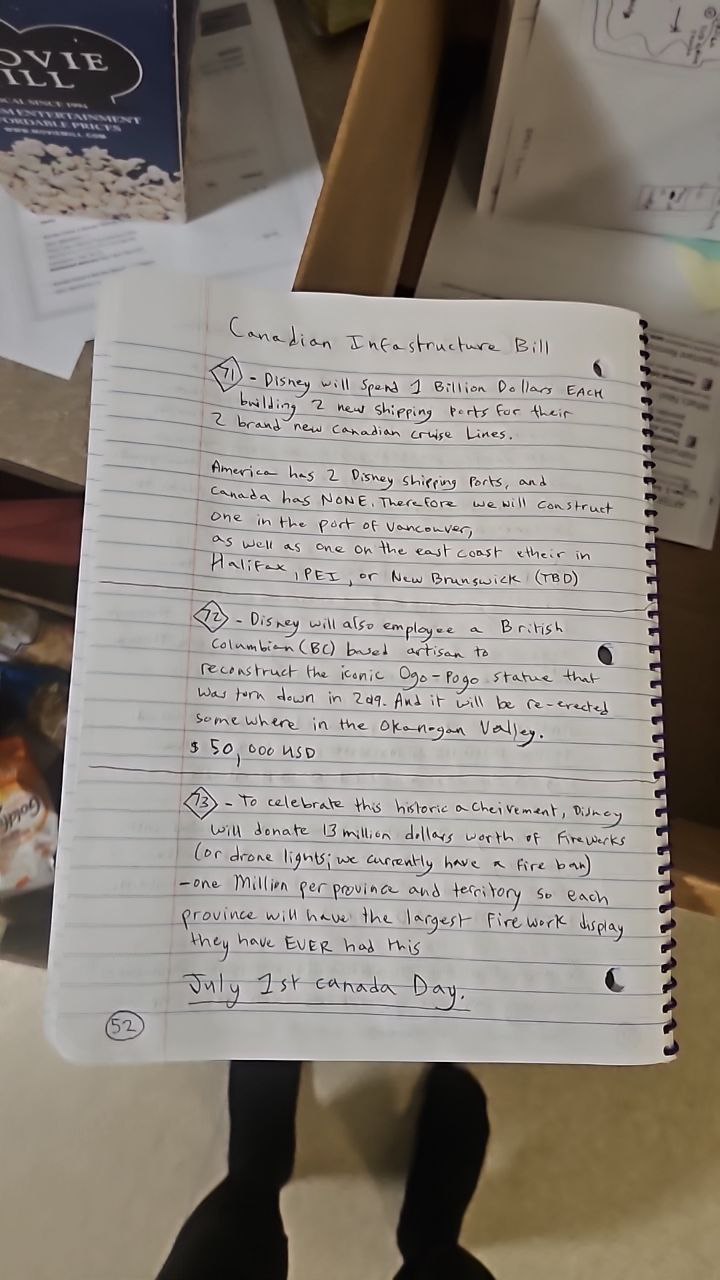 OVIE
ILL
CAL SINCE 1994
M ENTERTAINMENT
FORDABLE PRICES
Canadian Infastructure Bill
71 - Disney will spend 1 Billion Dollars EACH
building 2 new shipping ports for their
2 brand new Canadian cruise Lines.
America has 2 Disney shipping Ports, and
Canada has NONE. Therefore we will construct
one in the port of Vancouver,
as well as one on the east coast etheir in
Halifax, PEI, or New Brunswick (TBD)
72 - Disney will also employee a British
Columbian (BC) based artisan to
reconstruct the iconic Ogo-Pogo statue that
was torn down in 2019. And it will be re-erected
somewhere in the Okanogan Valley.
$50,000 USD
73 - To celebrate this historic acheivement, Disney
will donate 13 million dollars worth of Fireworks
(or drone lights; we currently have a fire ban)
- one Million per province and territory so each
province will have the largest firework display
they have EVER had this
July 1st Canada Day.
52
Goldfi